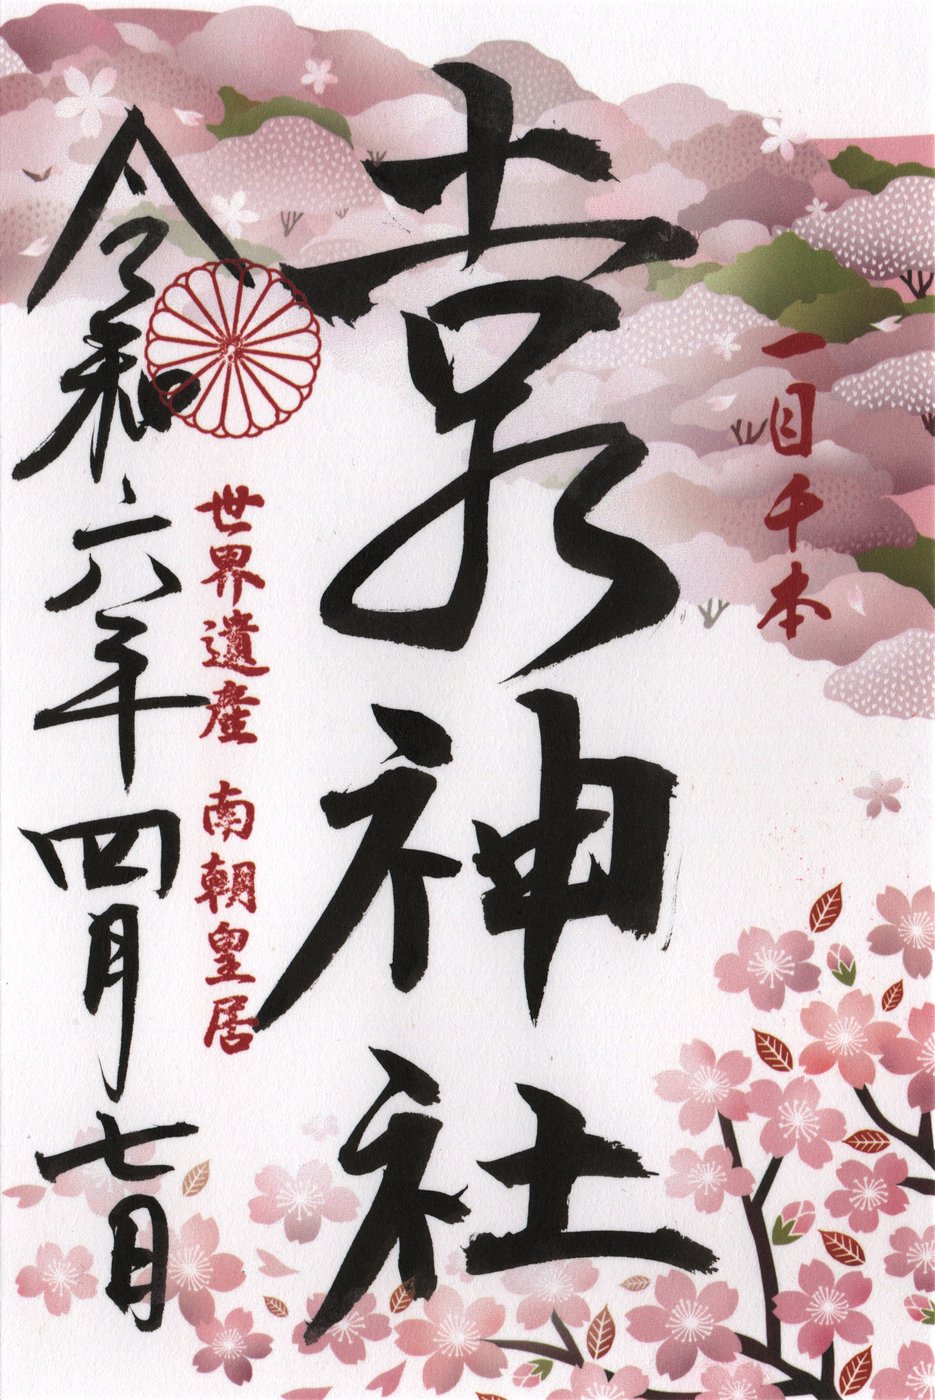 一目千本
𠮷水神社
世界遺産 南朝皇居
令和六年四月七日